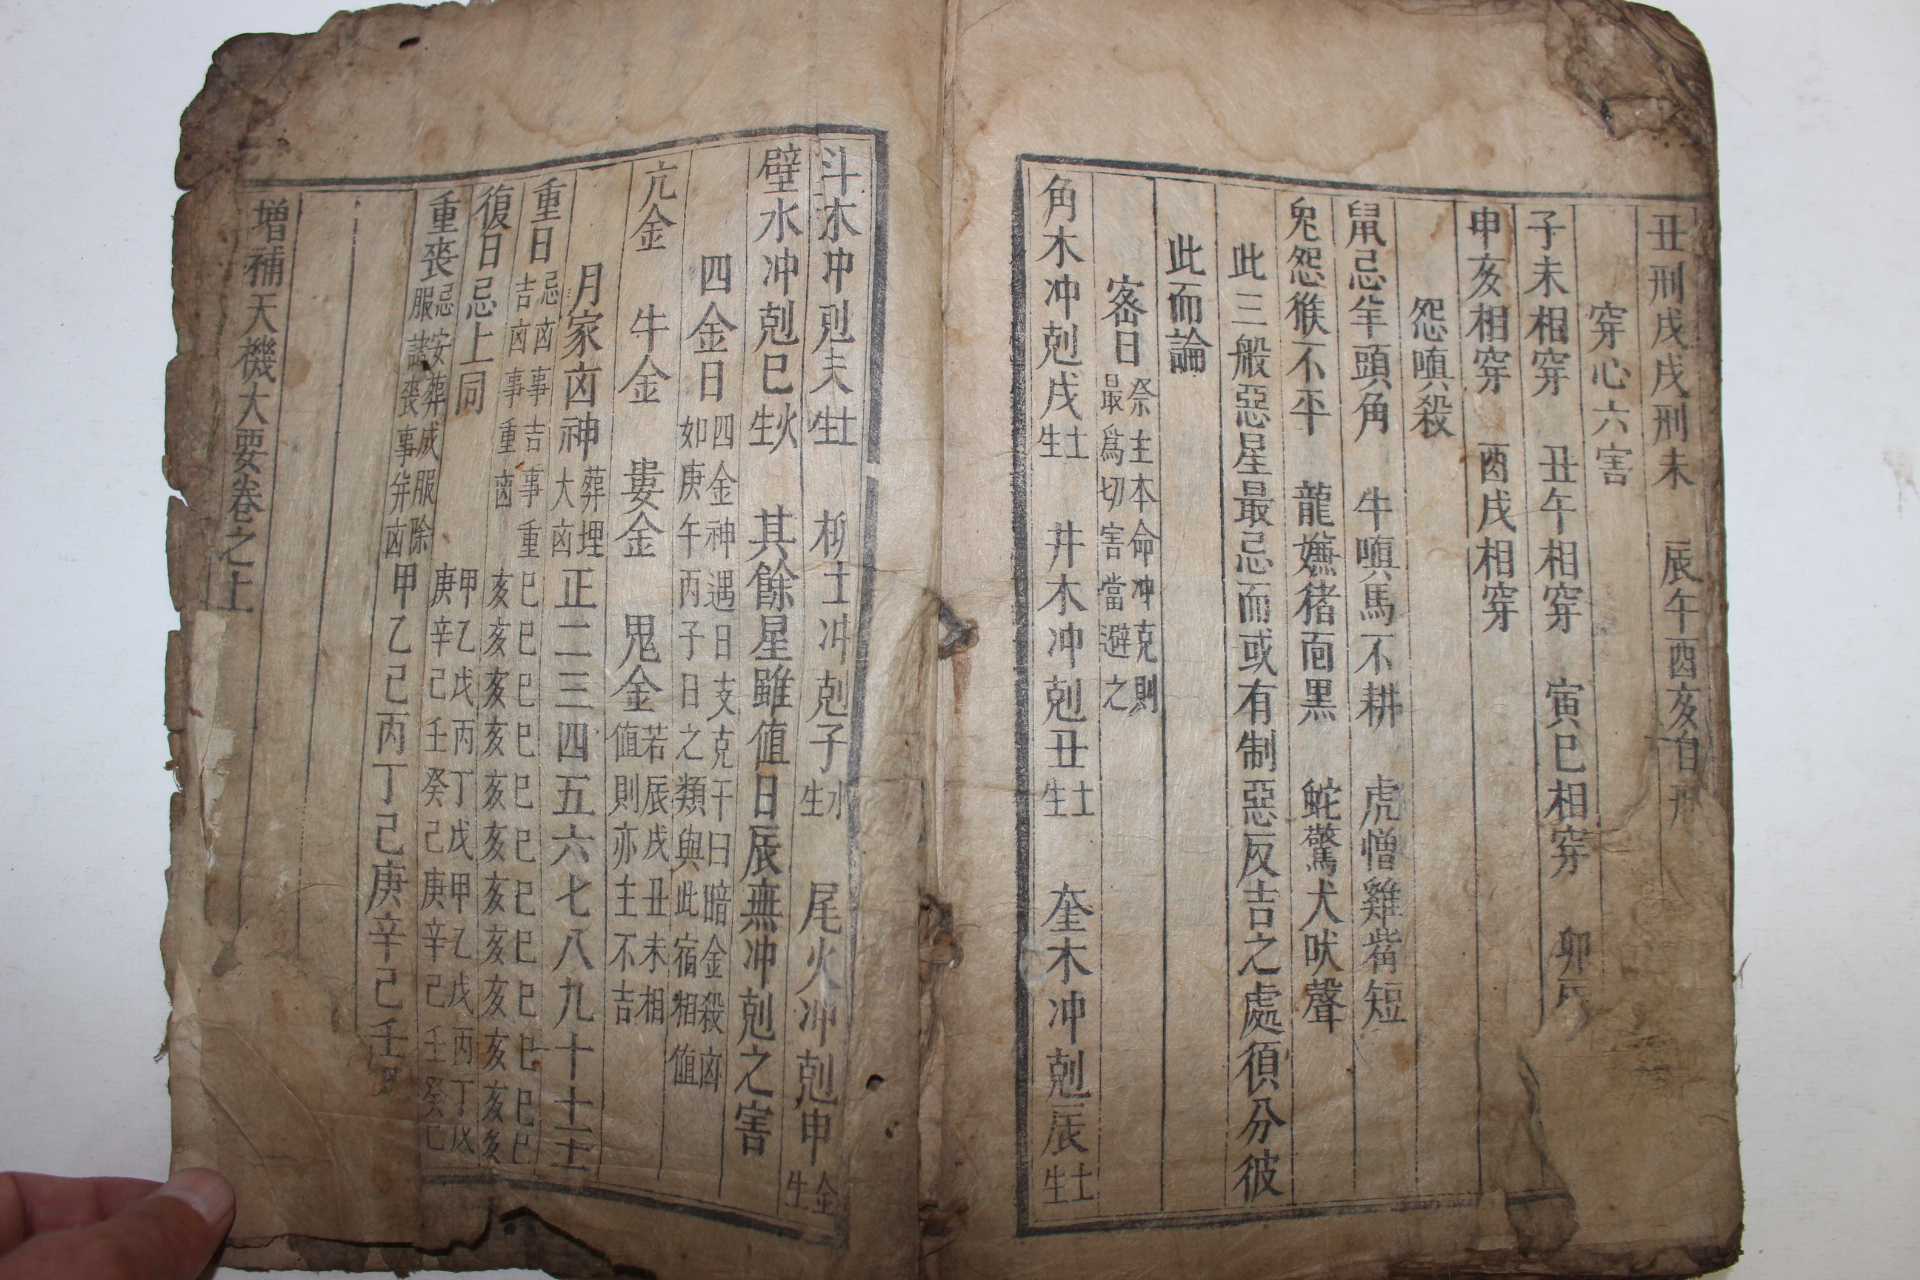 丑刑戌戌刑未 辰午酉亥自刑
穿心六害
子未相穿 丑午相穿 寅巳相穿 卯辰
申亥相穿 酉戌相穿
怨嗔殺
鼠忌羊頭角 牛嗔馬不耕 虎憎雞觜短
兔怨猴不平 龍嫌猪面黑 蛇驚犬吠聲
此三般惡星最忌而或有制惡反吉之處須分彼
此而論
密日 祭主本命冲克則
最爲切害當避之
角木冲剋戌 土生 井木冲剋丑 土生 奎木冲剋辰 土生
斗木冲剋未 土生 柳土冲剋子 水生 尾火冲剋申 金生
壁水冲剋巳 火生 其餘星雖値日辰無冲剋之害
四金日 四金神遇日支克干曰暗金殺凶
如庚午丙子日之類與此宿相値
亢金 牛金 婁金 鬼金 若辰戌丑未相
値則亦主不吉
月家凶神 葬埋
大凶 正二三四五六七八九十十一十二
重日 忌凶事吉事重
吉凶事重凶 巳巳巳巳巳巳巳巳巳巳巳巳
亥亥亥亥亥亥亥亥亥亥亥亥
復日忌上同 甲乙戊丙丁戊甲乙戊丙丁戊
庚辛己壬癸己庚辛己壬癸己
重喪 忌安葬成服除
服諸喪事幷凶 甲乙己丙丁己庚辛己壬
增補天機大要卷之上